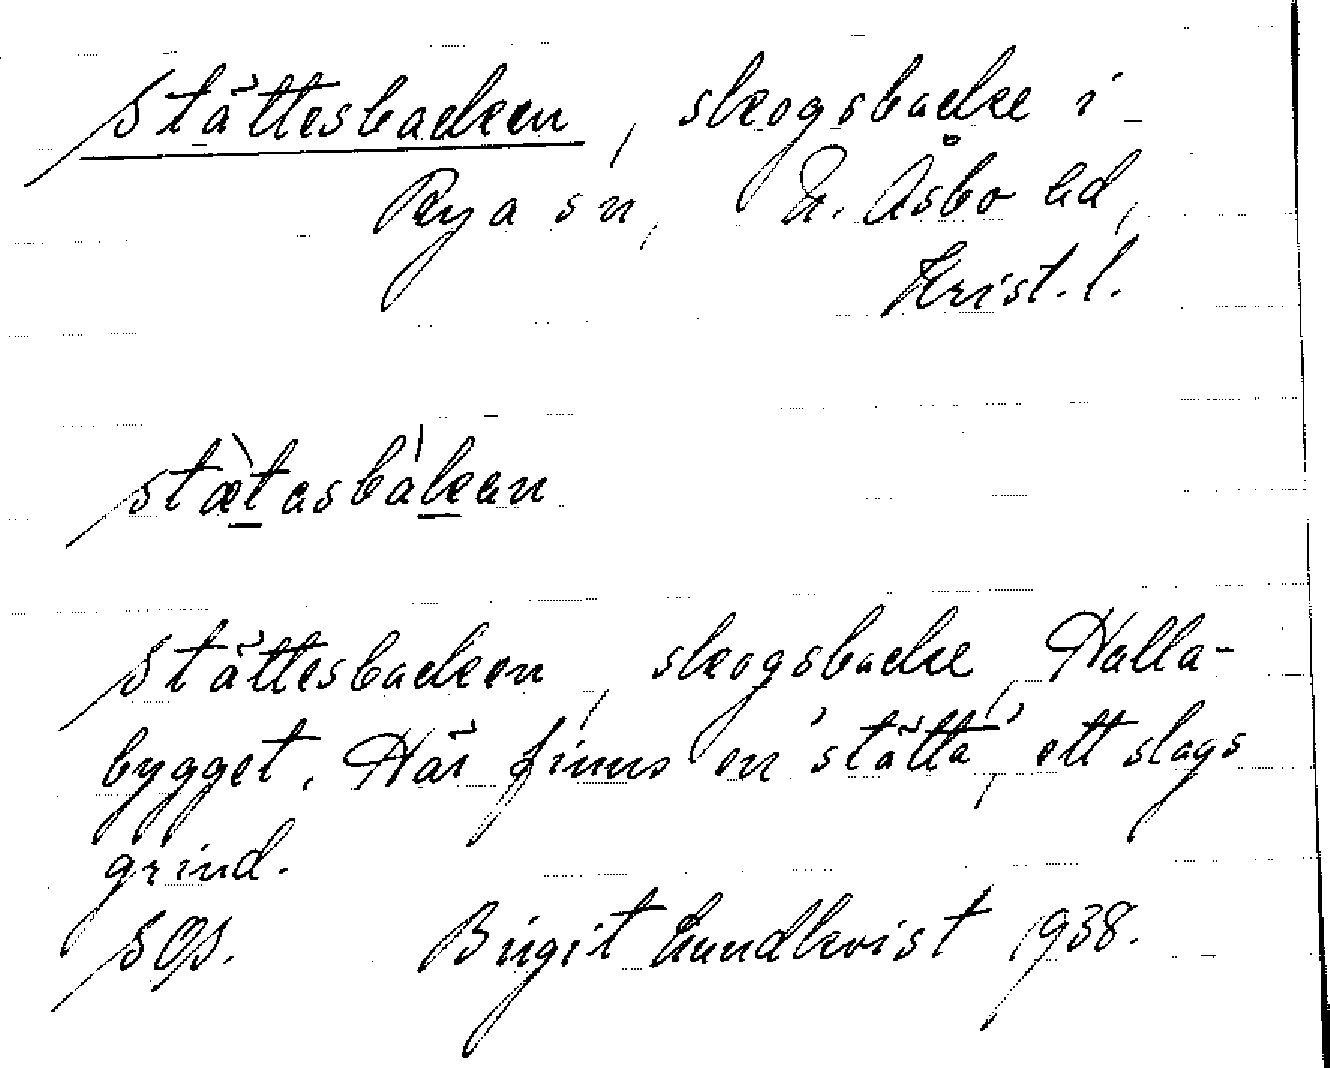 Stättesbacken, skogsbacke i
Rya sn, N. Åsbo hd,
Krist. l.
stætasbakan
Stättesbacken, skogsbacke, Halla-
bygget. Här finns en 'stätta', ett slags
grind.
SOS. Birgit Lundkvist 1938.